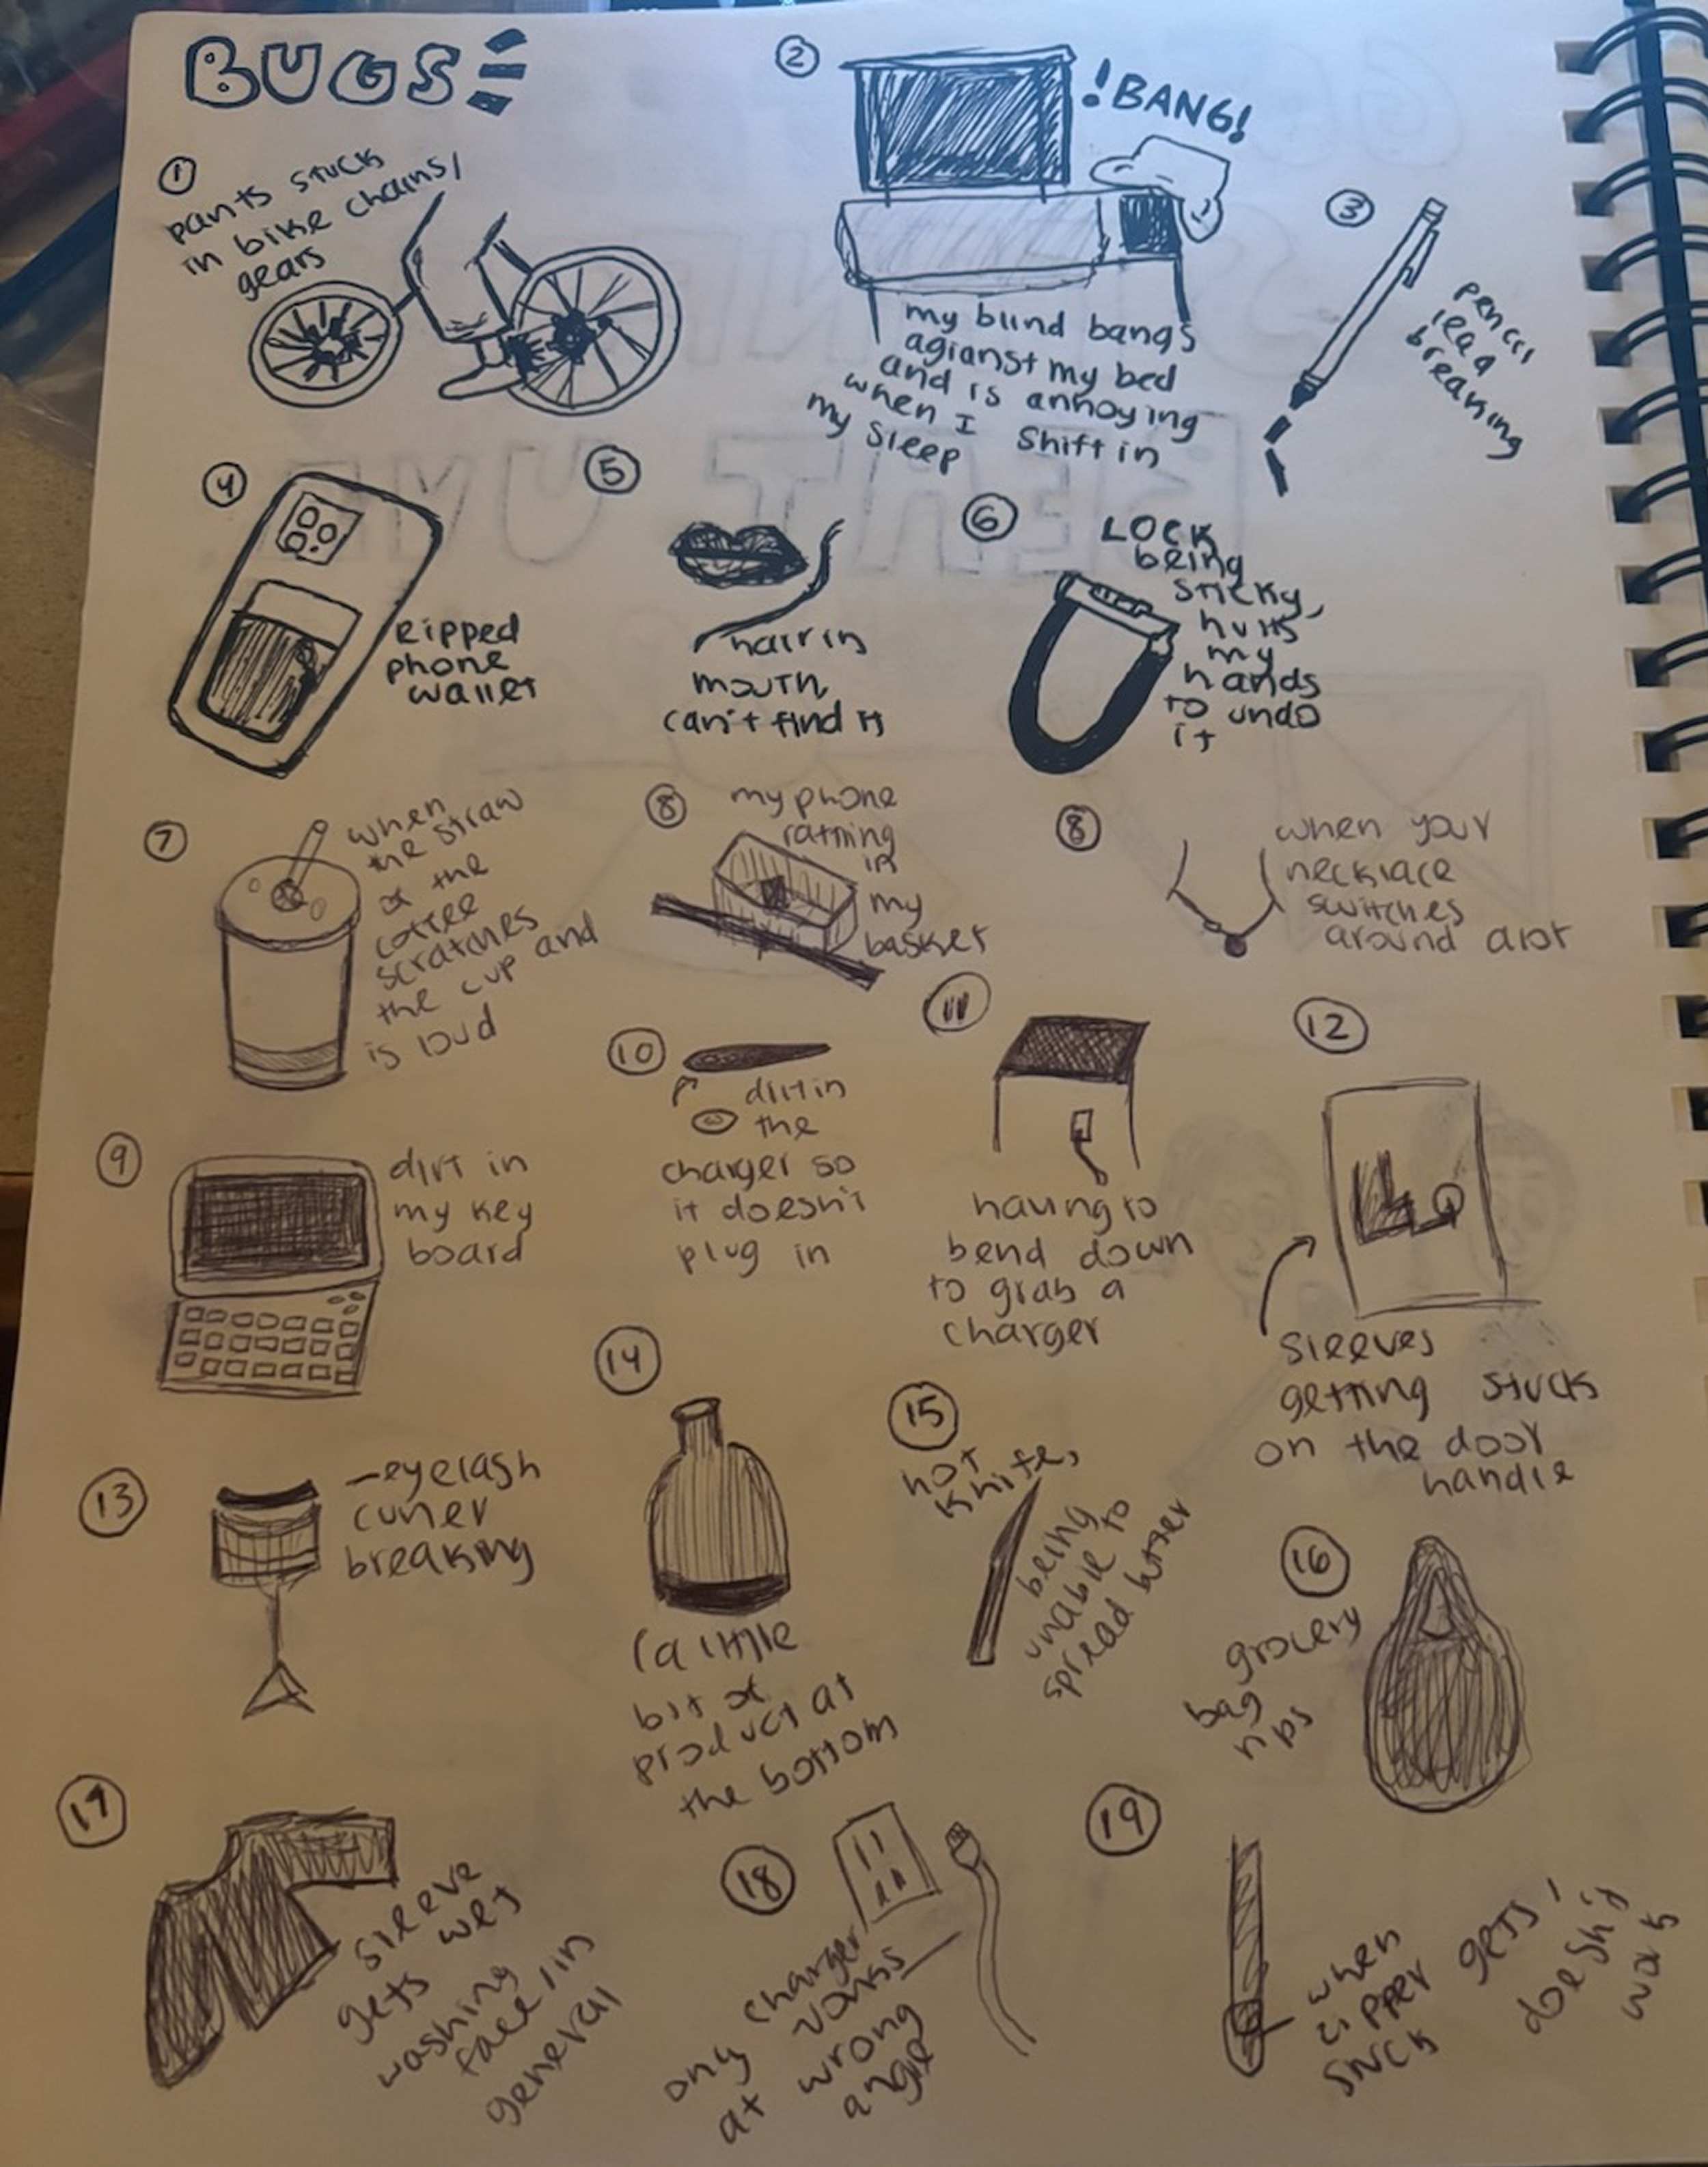 BUGS
①
pants stuck
in bike chains/
gears
②
!BANG!
my blind bangs
agianst my bed
and is annoying
when I shift in
my sleep
③
pencil
lead
breaking
④
Ripped
phone
wallet
⑤
hair in
mouth,
can't find it
⑥
LOCK
being
sticky,
hurts
my
hands
to undo
it
⑦
when
the straw
of the
coffee
scratches
the cup and
is loud
⑧
my phone
rattling
in
my
basket
⑧
when your
necklace
switches
around alot
⑨
dirt in
my key
board
⑩
dirt in
the
charger so
it doesn't
plug in
⑪
having to
bend down
to grab a
charger
⑫
sleeves
getting stuck
on the door
handle
⑬
-eyelash
curler
breaking
⑭
(a little
bit of
product at
the bottom
⑮
hot
knife,
being
unable to
spread butter
⑯
grocery
bag
rips
⑰
sleeve
gets wet
washing
face/in
general
⑱
ony charger
works
at wrong
angle
⑲
when
zipper gets /
stuck doesn't
work